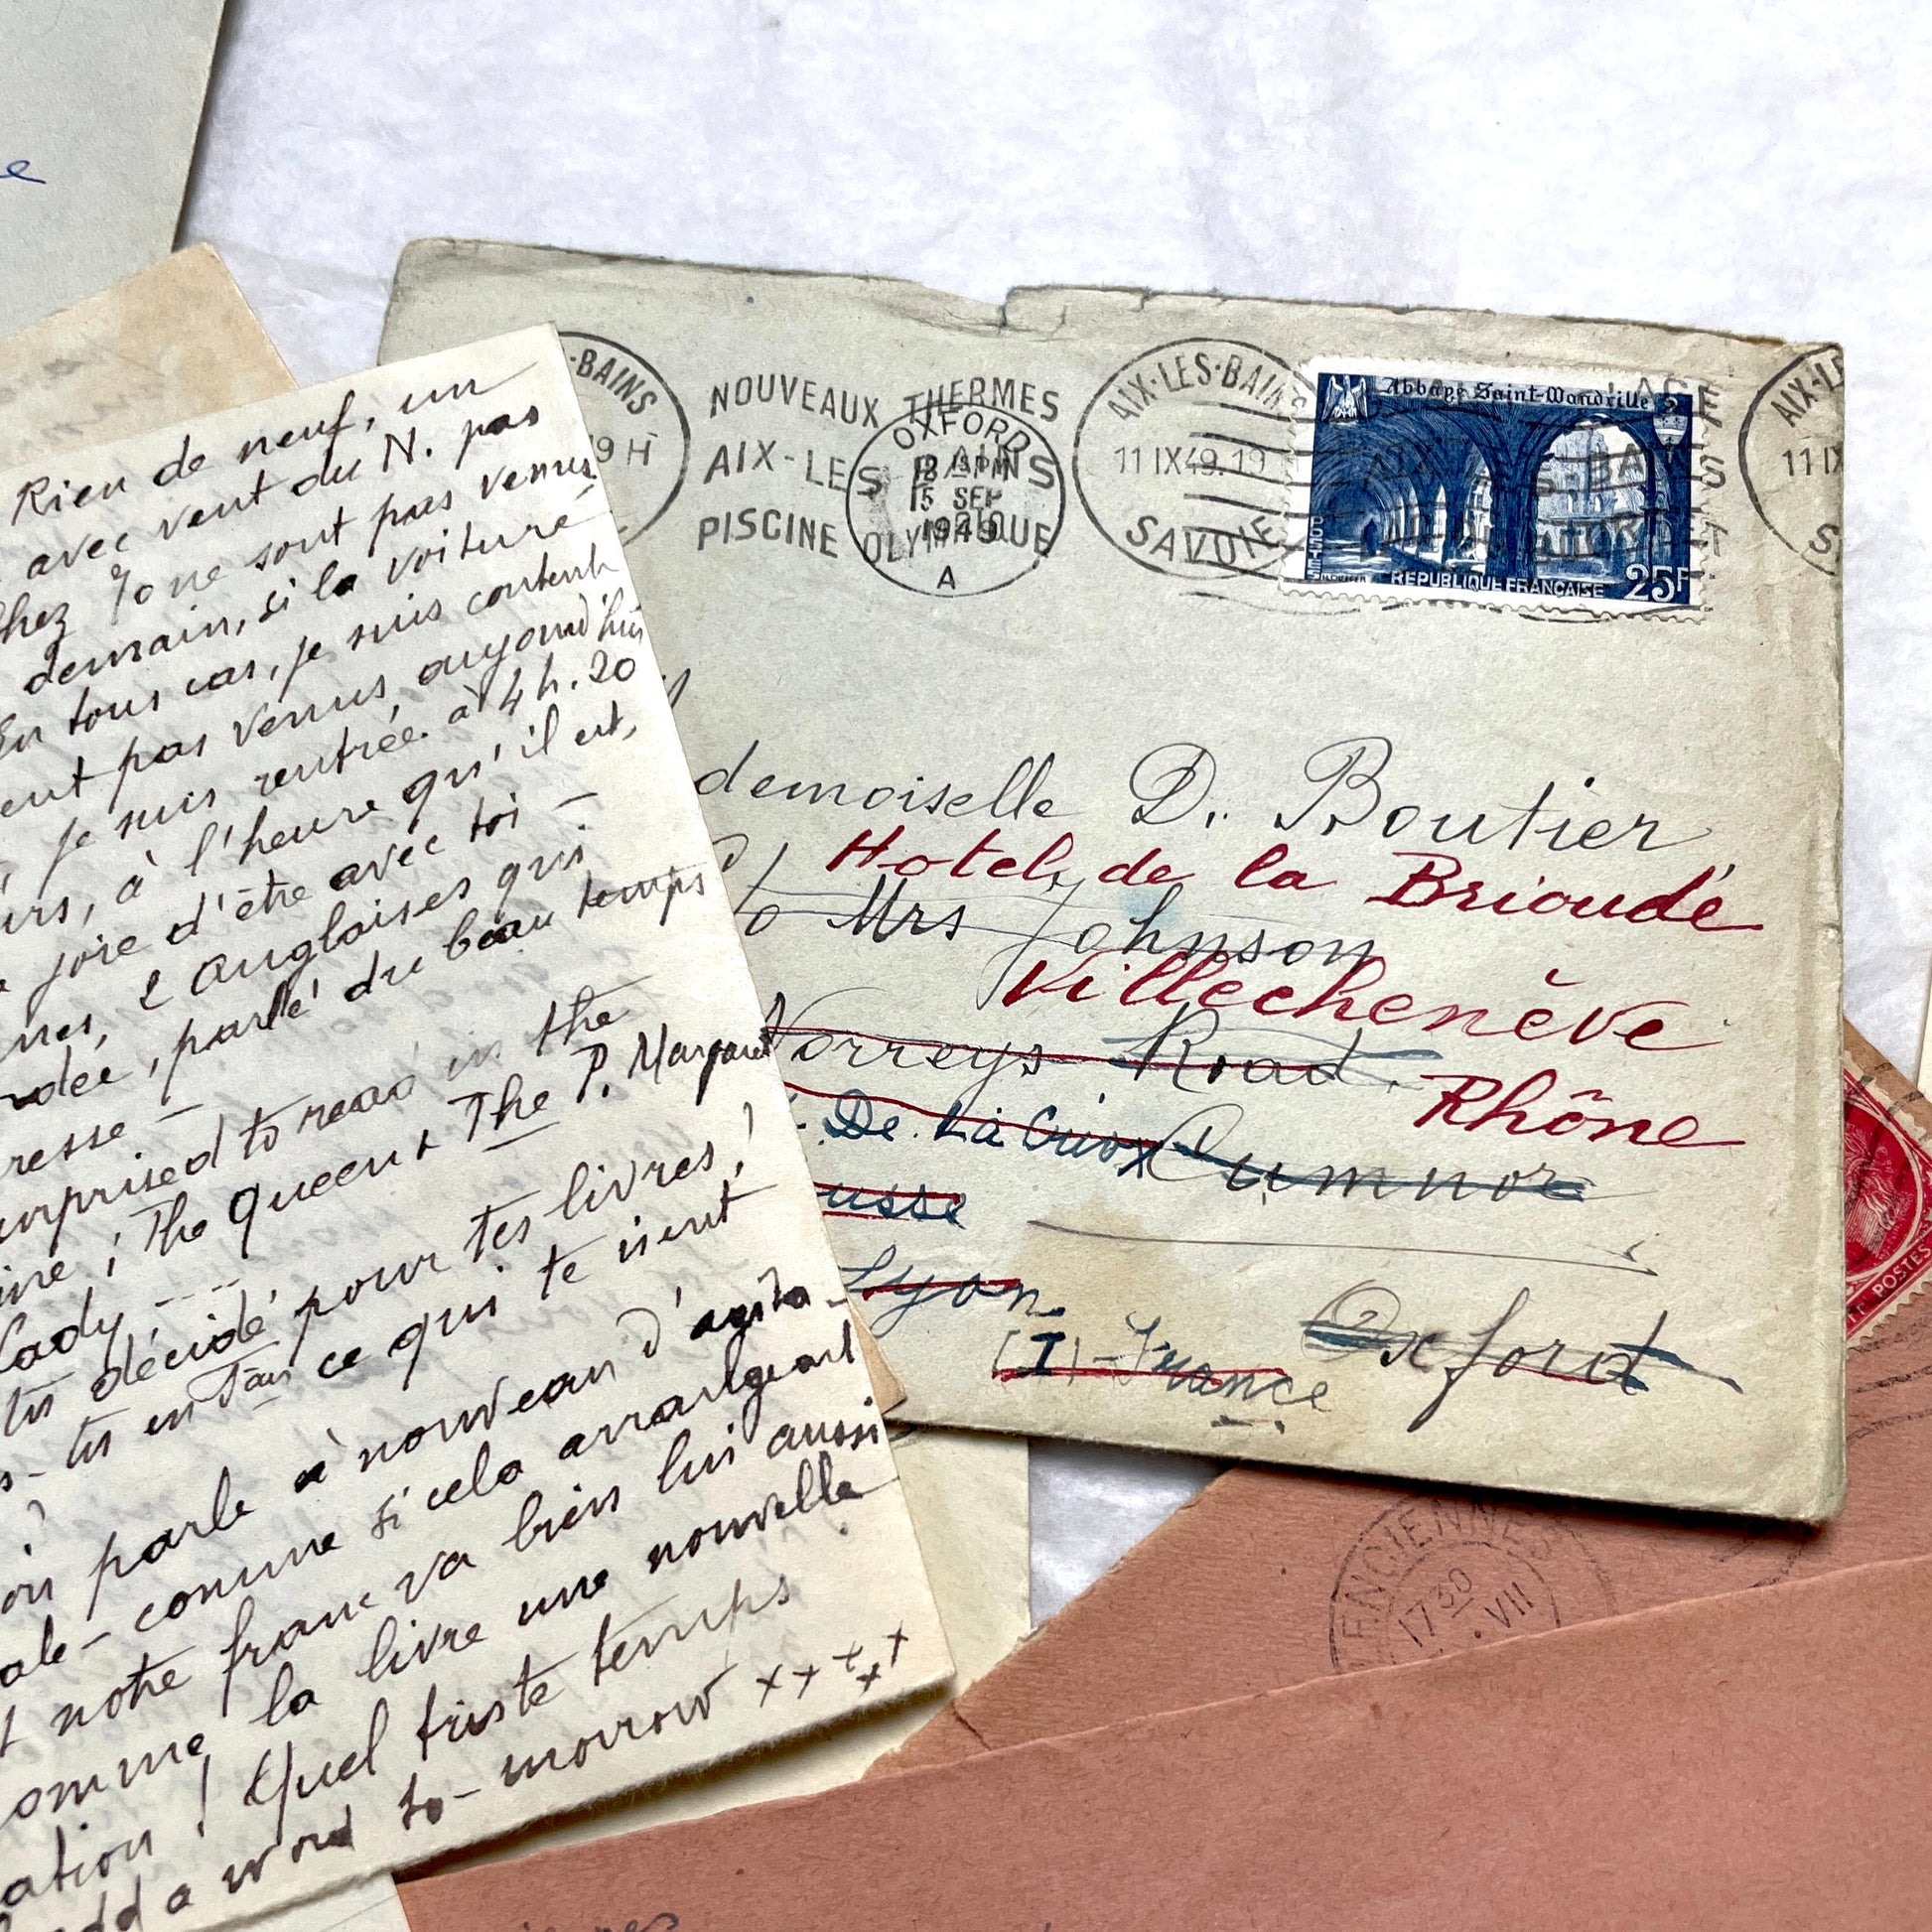 e
Rien de neuf, un
avec vent du N. pas
chez Yo ne sont pas venus
demain, si la voiture
En tous cas, je suis contente
ent pas venus, aujourd'hui
, je suis rentrée à 4 h. 20
urs, à l'heure qu'il est,
joie d'être avec toi –
nes, 2 anglaises qui
ndée, parlé du beau temps
resse –
urprised to read in the
ine ; the Queen & The P. Margaret
Lady - - -
tu décidé pour tes livres,
s-tu ce qui te vient
?
on parle à nouveau d'agita-
ale – comme si cela arrangeait
t notre franc va bien lui aussi
omme la livre une nouvelle
ation ! Quel triste temps
add a word to-morrow x x x x x
-BAINS
9 H
NOUVEAUX THERMES
AIX-LES-BAINS
PISCINE OLYMPIQUE
OXFORD
15 SEP
1949
A
AIX-LES-BAINS
11 IX 49. 19
SAVOIE
Abbaye Saint-Wandrille
POSTES
REPUBLIQUE FRANÇAISE 25F
AIX-L
11 IX
S
demoiselle D. Boutier
Hotel de la Brioude
c/o Mrs Johnson
Villechenève
Norreys Road
Rhône
De La Croix
Cumnor
usse
Lyon.
Oxford
(I) - France
POSTES
ENCIENNES
17 30
VII